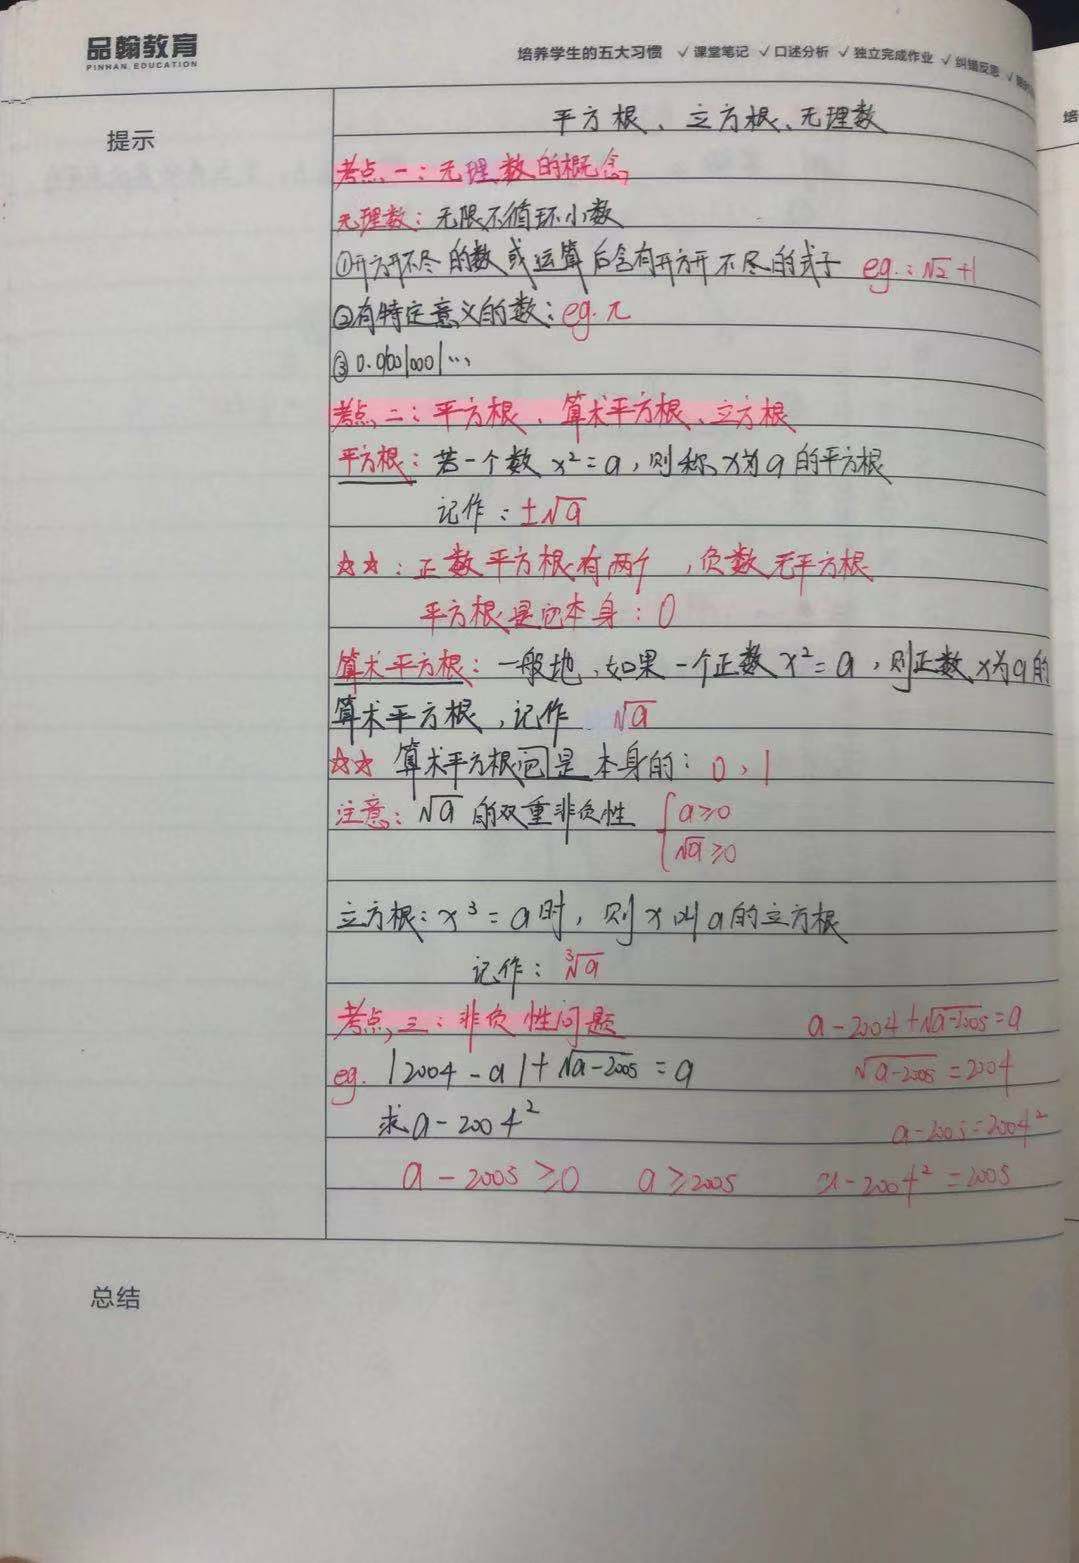 品翰教育
PINHAN EDUCATION
培养学生的五大习惯 √课堂笔记 √口述分析 √独立完成作业 √纠错反思 √
培
提示
平方根、立方根、无理数
考点一：无理数的概念
无理数：无限不循环小数
①开方开不尽的数或运算后含有开方开不尽的式子 eg.：√2+1
②有特定意义的数：eg. π
③0.0010001…
考点二：平方根、算术平方根、立方根
平方根：若一个数 x²=a，则称x为a的平方根
记作：±√a
☆☆：正数平方根有两个，负数无平方根
平方根是它本身：0
算术平方根：一般地，如果一个正数x²=a，则正数x为a的
算术平方根，记作 √a
☆☆ 算术平方根它是本身的：0，1
注意：√a 的双重非负性 { a≥0
√a≥0
立方根：x³=a时，则x叫a的立方根
记作：³√a
考点三：非负性问题 a-2004+√a-2005=a
eg. |2004-a|+√a-2005=a √a-2005=2004
求a-2004² a-2005=2004²
a-2005≥0 a≥2005 a-2004²=2005
总结